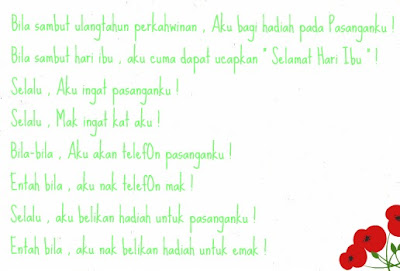 Bila sambut ulangtahun perkahwinan , Aku bagi hadiah pada Pasanganku !
Bila sambut hari ibu , aku cuma dapat ucapkan " Selamat Hari Ibu " !
Selalu , Aku ingat pasanganku !
Selalu , Mak ingat kat aku !
Bila-bila , Aku akan telefOn pasanganku !
Entah bila , aku nak telefOn mak !
Selalu , aku belikan hadiah untuk pasanganku !
Entah bila , aku nak belikan hadiah untuk emak !